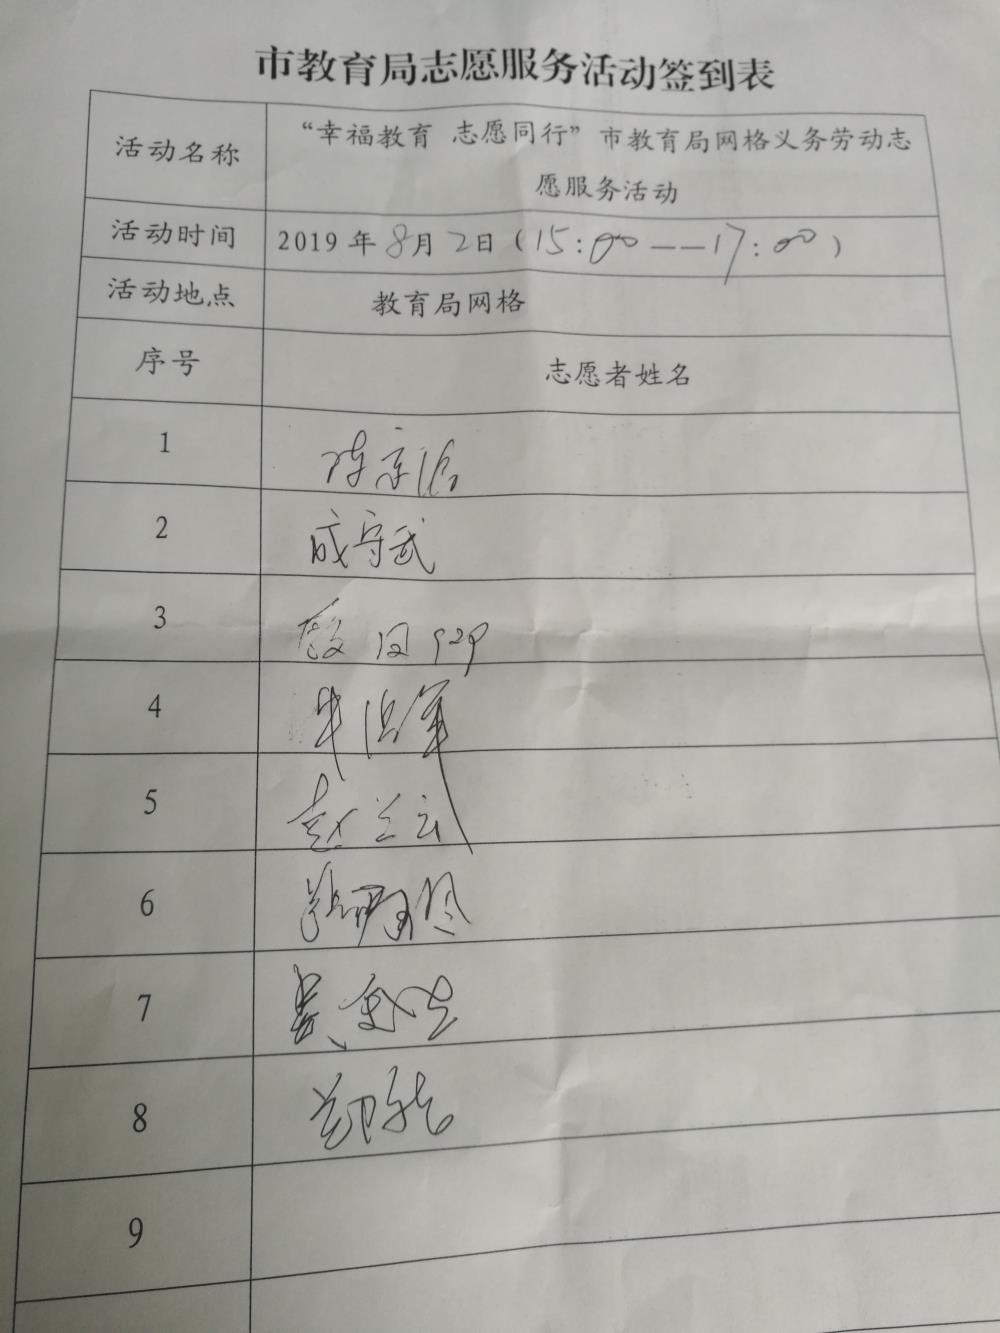 市教育局志愿服务活动签到表
活动名称
“幸福教育 志愿同行”市教育局网格义务劳动志
愿服务活动
活动时间
2019年8月2日(15:00——17:00)
活动地点
教育局网格
序号
志愿者姓名
1
陈宗治
2
成守武
3
殷国
4
牛洪军
5
赵兰云
6
7
8
9